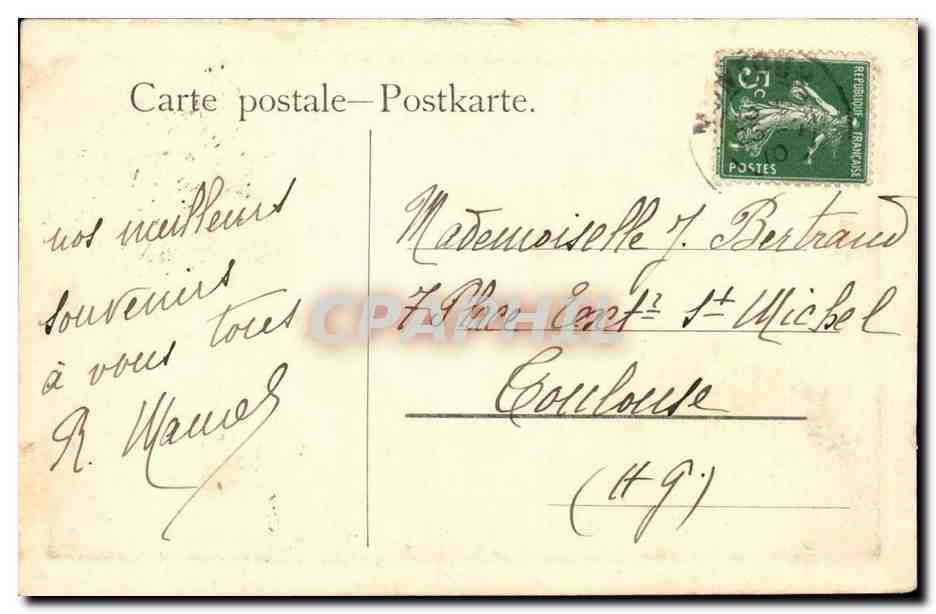 Carte postale—Postkarte.
5c
REPUBLIQUE FRANÇAISE
POSTES
nos meilleurs
souvenirs
à vous tous
R.
Mademoiselle J. Bertrand
7 Place Extre St Michel
Toulouse
(H G.)
CPAPHIL